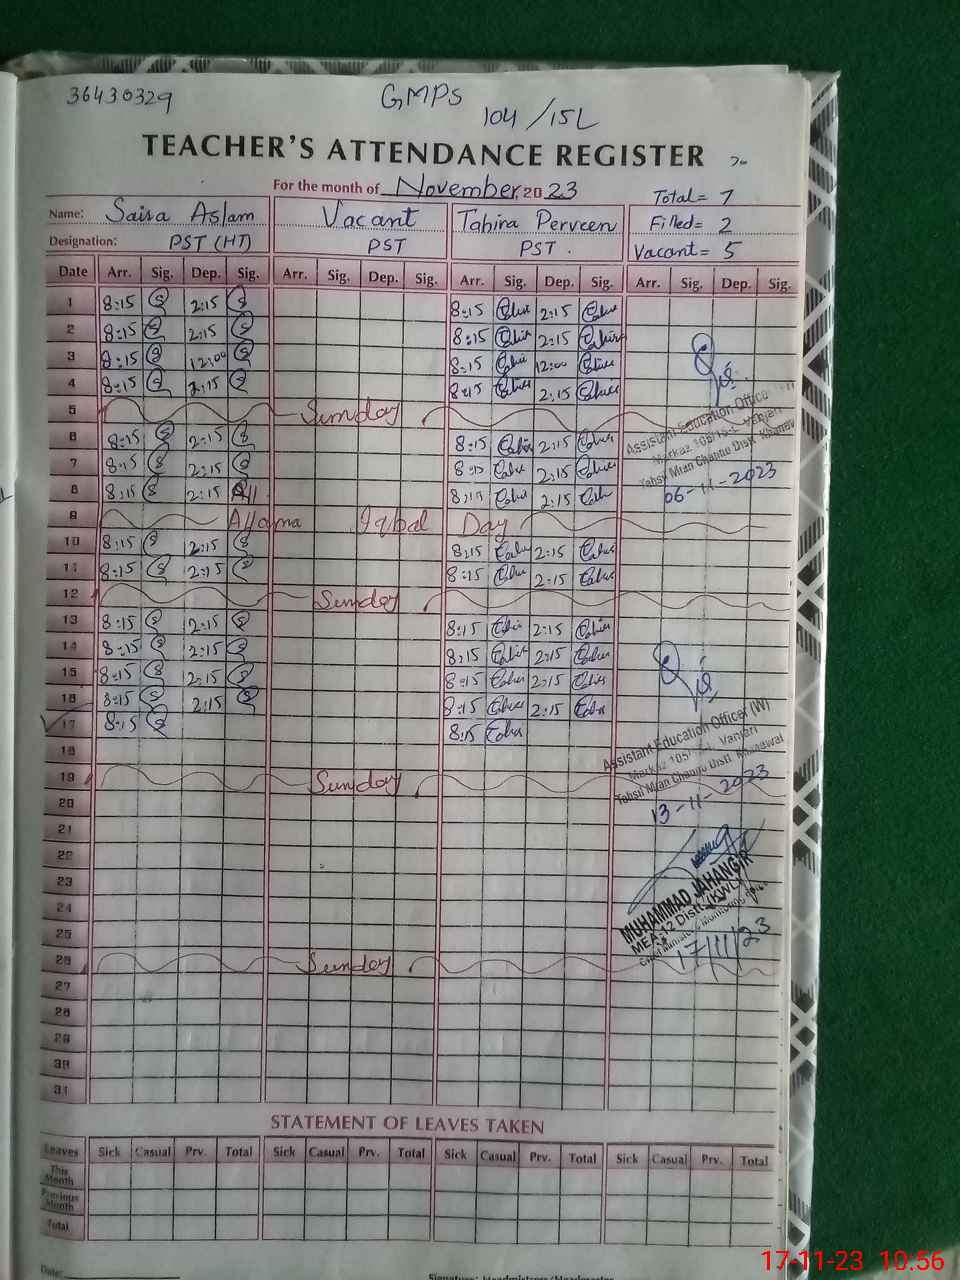 36430329 GMPS
104/15L
TEACHER'S ATTENDANCE REGISTER
For the month of November, 2023
Total= 7
Name: Saira Aslam Vacant Tahira Perveen Filled= 2
Designation: PST (HT) PST PST. Vacant= 5
Date Arr. Sig. Dep. Sig. Arr. Sig. Dep. Sig. Arr. Sig. Dep. Sig. Arr. Sig. Dep. Sig.
1 8:15 2:15 8:15 2:15
2 8:15 2:15 8:15 2:15
3 8:15 12:00 8:15 12:00
4 8:15 2:15 8:15 2:15
5 Sunday
Assistant Education Officer
6 8:15 2:15 8:15 2:15
Markaz 105/15-L Vanjari
7 8:15 2:15 8:15 2:15
Tahsil Mian Channu Distt. Khanewal
8 8:15 2:15 8:15 2:15
06-11-2023
9 Allama Iqbal Day
10 8:15 2:15 8:15 2:15
11 8:15 2:15 8:15 2:15
12 Sunday
13 8:15 2:15 8:15 2:15
14 8:15 2:15 8:15 2:15
15 8:15 2:15 8:15 2:15
16 8:15 2:15 8:15 2:15
17 8:15 8:15
Assistant Education Officer (W)
18
Markaz 105/15-L Vanjari
19 Sunday
Tahsil Mian Channu Distt. Khanewal
20
13-11-2023
21
22
23
24
MUHAMMAD JAHANGIR
25
MEA-12 Distt. (KWL)
17/11/23
26 Sunday
27
28
29
30
31
STATEMENT OF LEAVES TAKEN
Leaves Sick Casual Prv. Total Sick Casual Prv. Total Sick Casual Prv. Total Sick Casual Prv. Total
This Month
Previous Month
Total
Date:
Signature: Headmaster/Headmistress
17-11-23 10:56